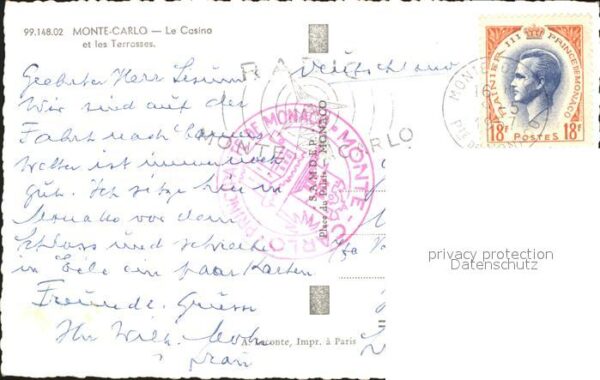 99.148.02 MONTE-CARLO — Le Casino
et les Terrasses.
Geehrter Herr
Deutschland
Wir sind auf der
Fahrt nach Cannes
Wetter ist immer noch
gut. Ich sitze hier in
Monako vor dem
Schloss und schreibe
in Eile ein paar Karten
Freundl. Gruss
Ihr Wilh.
Frau
RAINIER III PRINCE DE MONACO
18F POSTES 18F
MONTE-CARLO
MONTE CARLO
PRINCIPAUTÉ DE MONACO • MONTE-CARLO
Place du Palais - MONACO
Imp. à Paris
privacy protection
Datenschutz